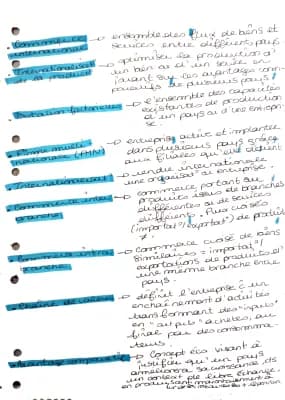 Commerce international → ensemble des flux de biens et
services entre différents pays.
Internationalisat° de la product° → optimiser la production d'
un bien ou d'un service en
jouant sur les avantages com-
paratifs de plusieurs pays
Dotation factorielle → l'ensemble des capacités
existantes de production
d'un pays ou d'une entrepri-
se.
Firme multi nationale (FMN) → entreprise active et implantée
dans plusieurs pays grâce
aux filiales qu'elle détient
Internationalisat° → rendre internationale
une organisat° ou entreprise.
Commerce inter branche → commerce portant sur
produits issus de branches
différentes ou de services
différents. Flux croisés
(importat°/exportat°) de produits
Commerce intra branche → Commerce croisé de biens
similaires = importat°/
exportations de produits d'
une même branche entre
pays.
Chaîne de valeur → définit l'entreprise à un
enchaînement d'activités
transformant des "inputs"
en "outputs" achetés, au
final par des consomma-
teurs.
Avantage comparatif → Concept éco visant à
justifier qu'un pays
améliorera sa croissance ds
un context de libre échange,
en produisant